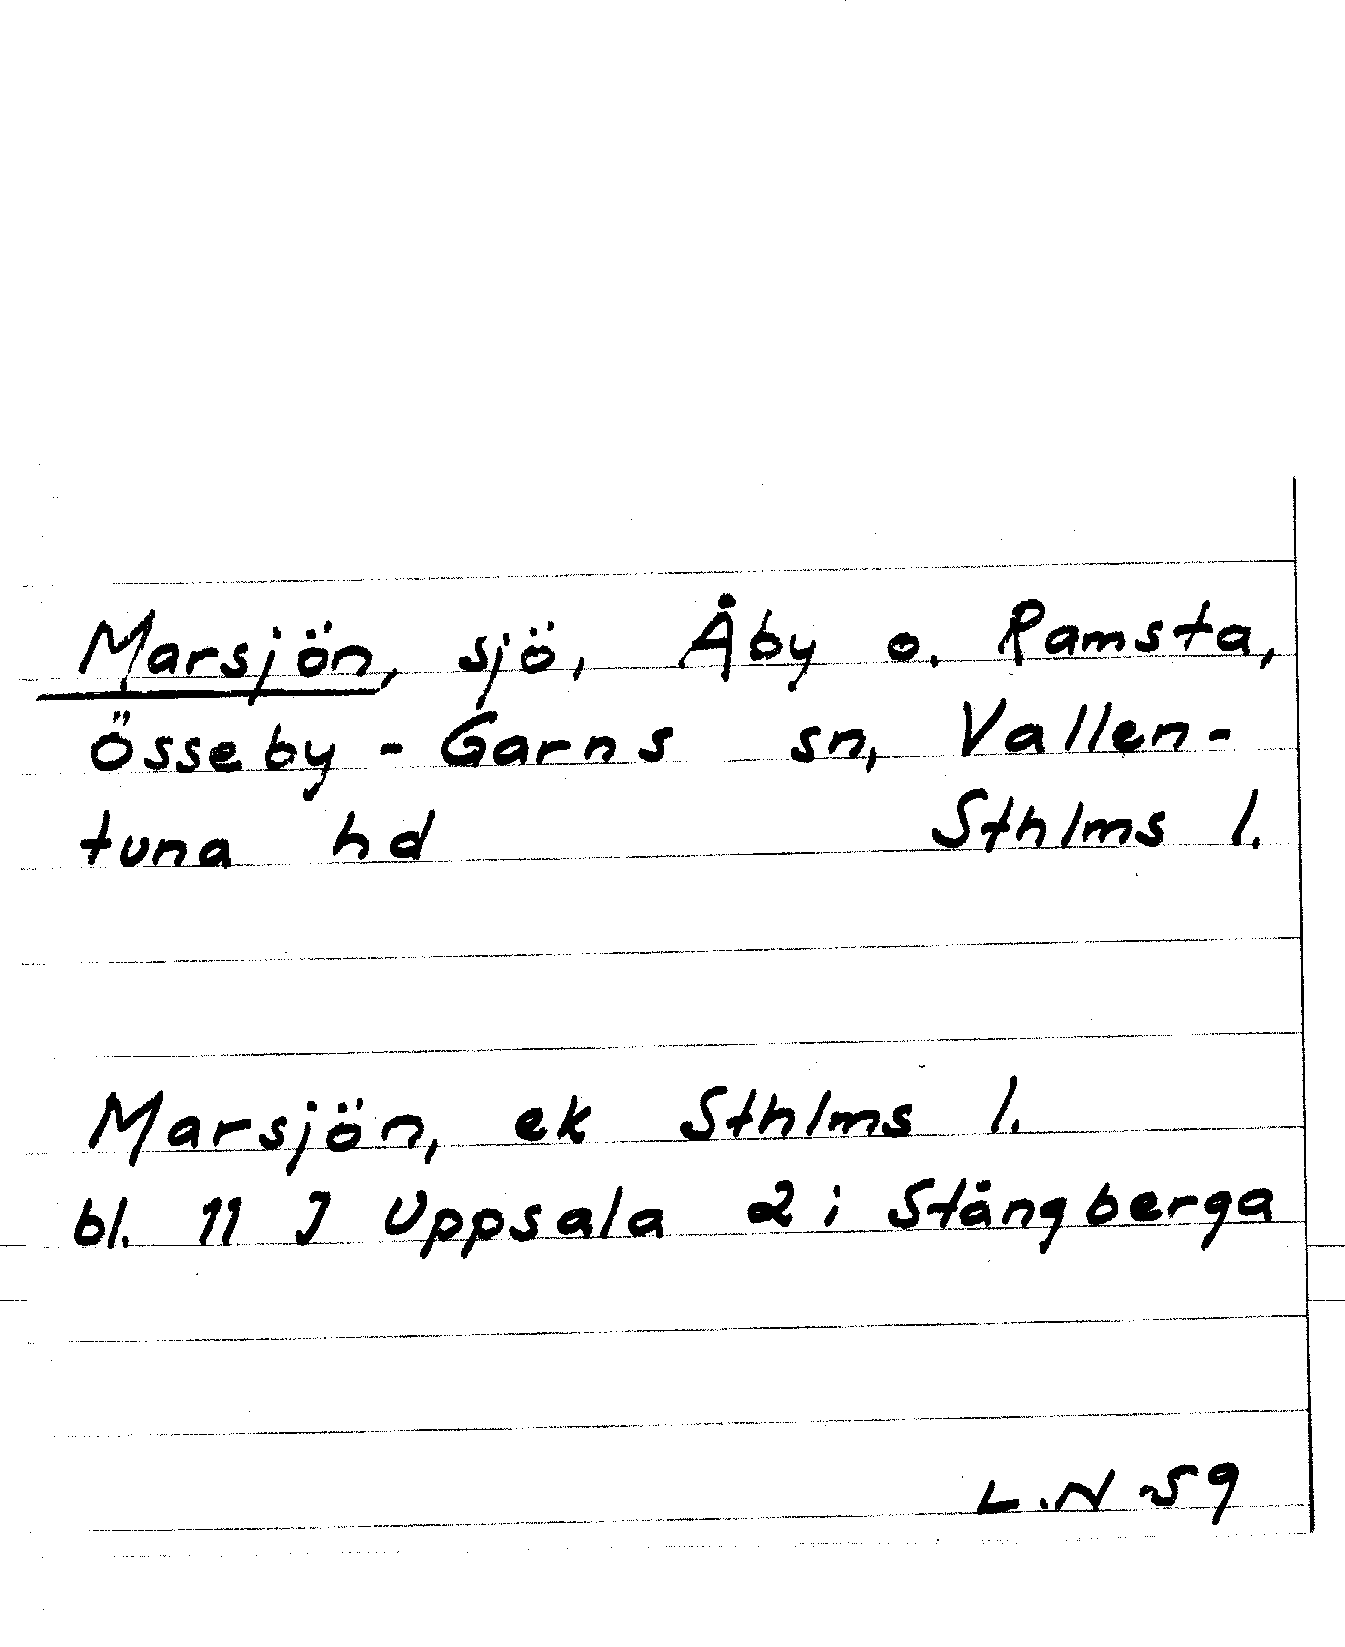 Marsjön, sjö, Åby o. Ramsta,
Össeby - Garns sn, Vallen-
tuna hd Sthlms l.
Marsjön, ek Sthlms l.
bl. 11 J Uppsala 2 i Stångberga
L.N -59